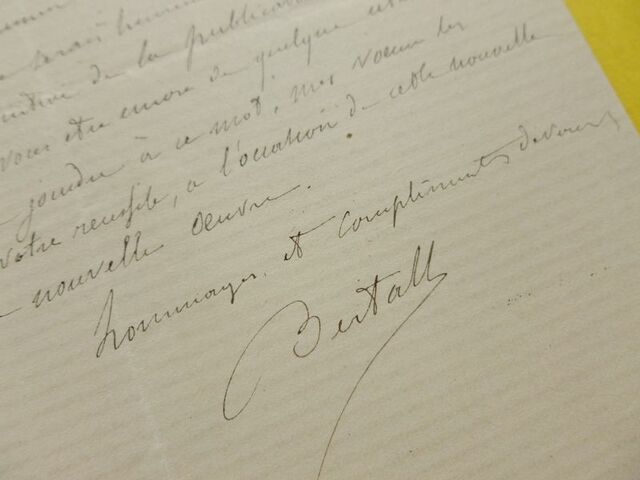 serait
de la publication
vous être encore de quelque
joindre à ce mot, mes voeux les
votre reussite, a l'occasion de cette nouvelle
nouvelle oeuvre.
hommages, et compliments devoués
Bertall